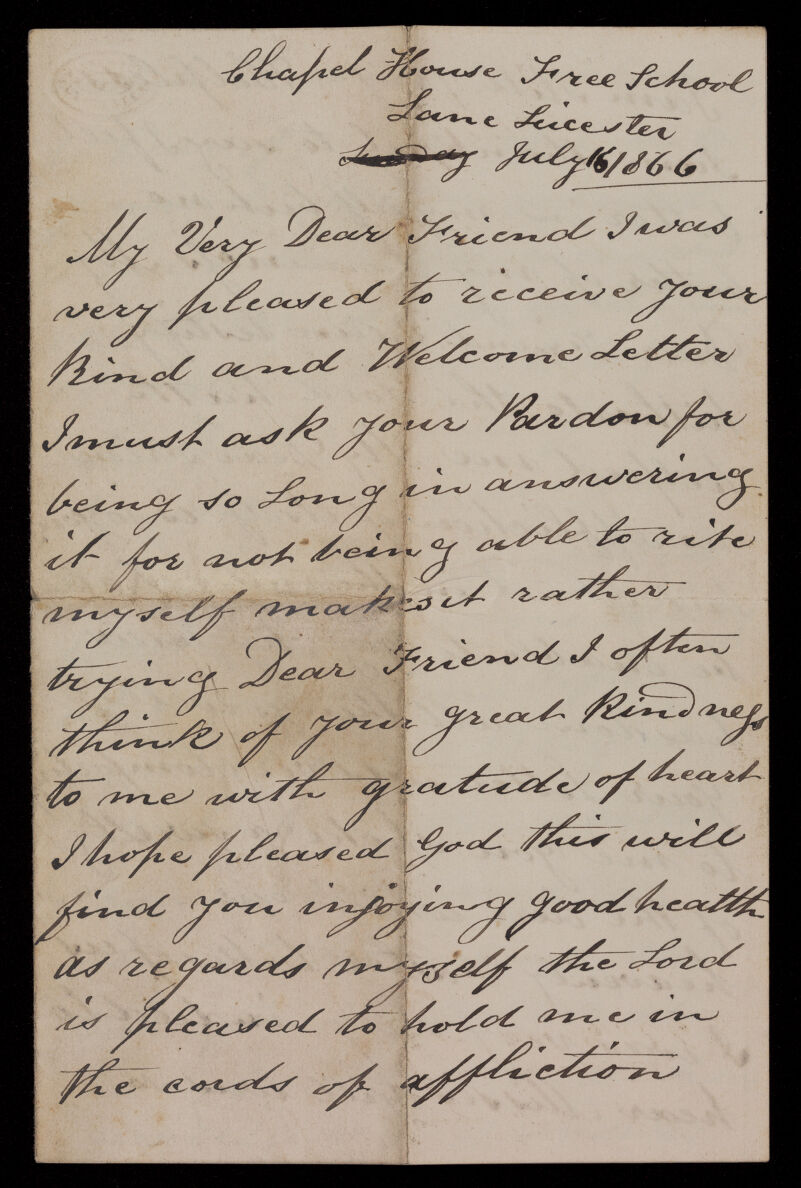 Chapel House Free School
Lane Leicester
Sunday July 16 1866
My Very Dear Friend I was
very pleased to receive your
kind and Welcome Letter
I must ask your Pardon for
being so Long in answering
it for not being able to rite
myself makes it rather
trying Dear Friend I often
think of your great Kindness
to me with gratude of heart
I hope pleased God this will
find you injoying good healtth
as regards myself the Lord
is pleased to hold me in
the cords of affliction